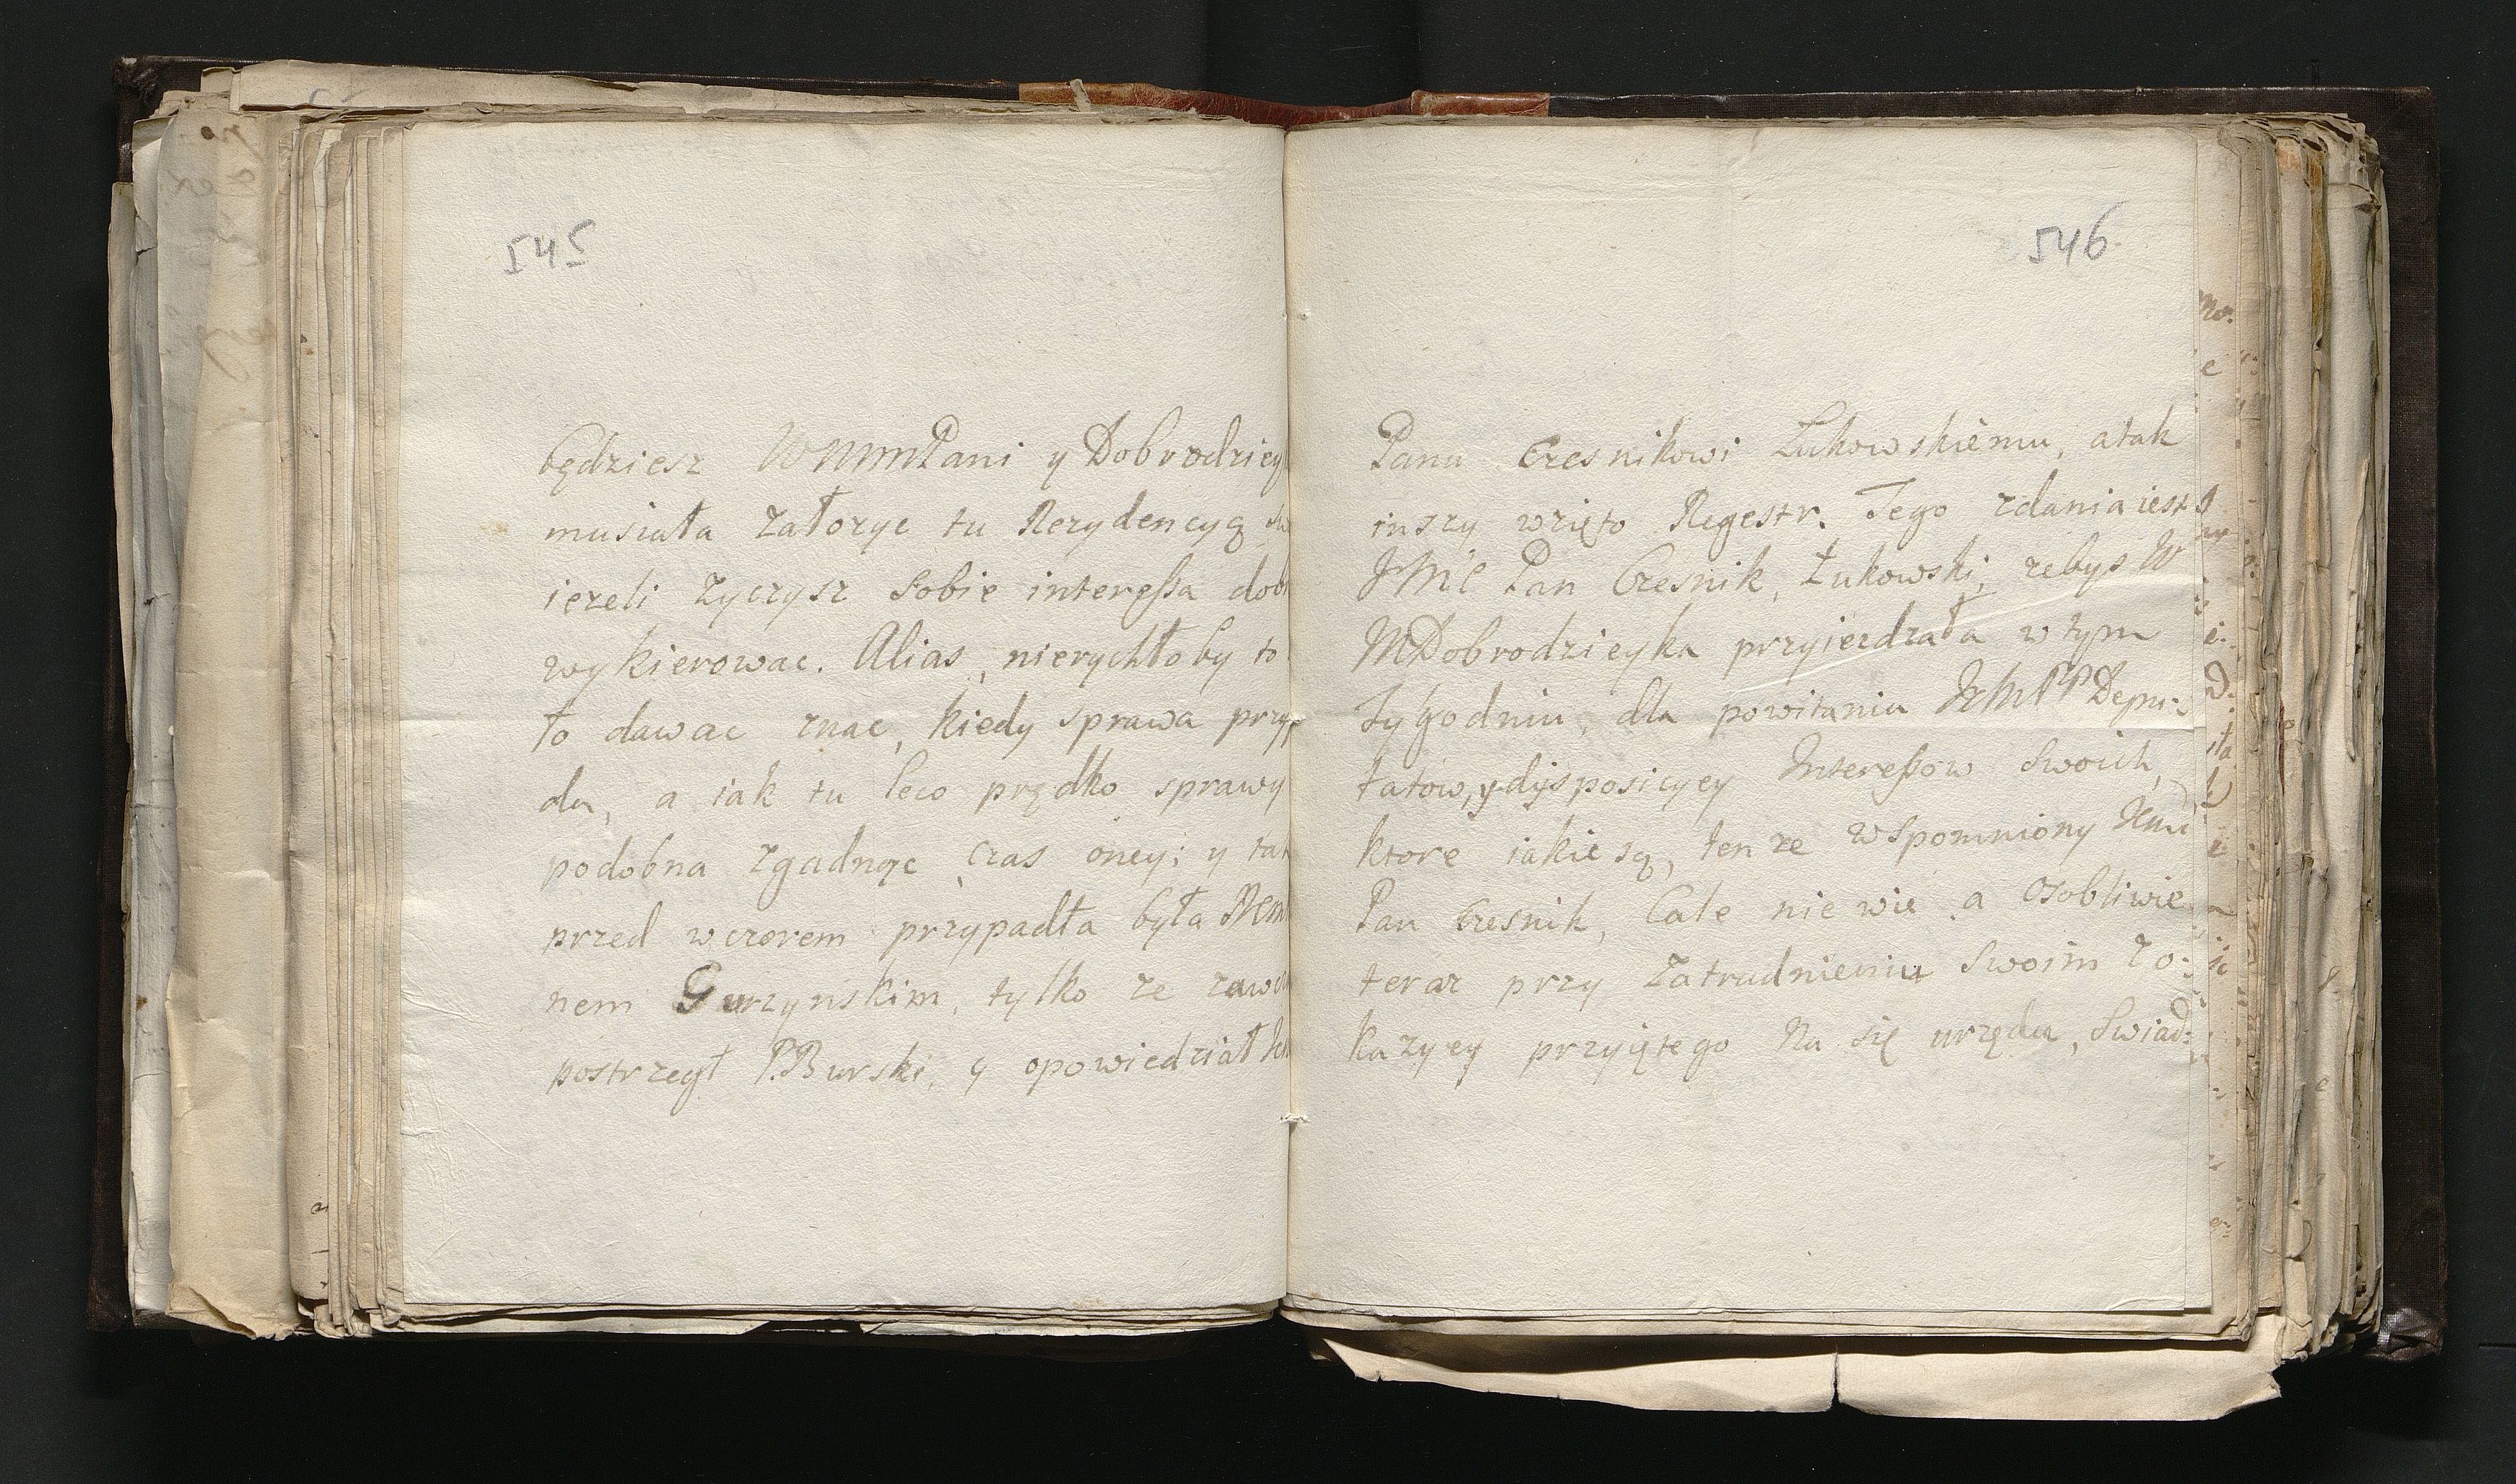 545
będziesz WMMPani y Dobrodziey
musiała załozyc tu Rezydencyą
iezeli zyczysz sobie interessa
wykierowac. Alias, nierychło by to
to dawac znac, kiedy sprawa przyp
da, a iak tu leco prędko sprawy
podobna zgadnąc czas oney; y
przed wczorem przypadła była
nem Gurzynskim, tylko ze
postrzegł P. Burski, y opowiedział
546
Panu Czesnikowi Łukowskiemu, atak
inszy wzięto Regestr. Tego zdania iest
JMC Pan Czesnik, Łukowski, zebys W
MDobrodzieyka przyiezdzała w tym
Tygodniu, dla powitania Depu:
tatow, y dysposicyey Interessow Swoich,
ktore iakie są, ten ze wspomniony
Pan Czesnik, Cale nie wie a osobliwie
teraz przy Zatrudnieniu Swoim z o:
kazyey przyiętego Na się urzędu, Swiad: